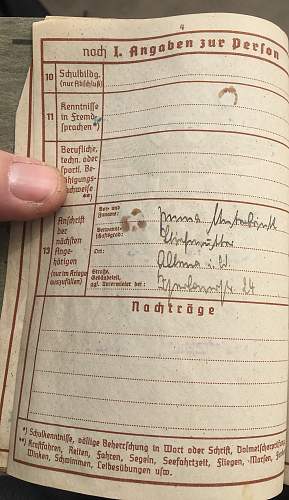 4
noch I. Angaben zur Person
10 Schulbildg.
(nur Abschluß)
11 Kenntnisse
in Fremd-
sprachen*)
Berufliche,
techn. oder
sportl. Be-
fähigungs-
nachweise
**)
13 Anschrift
der
nächsten
Ange-
hörigen
(nur im Kriege
auszufüllen)
Vor- und
Zuname:
Verwandt-
schaftsgrad:
Ort: Altena i. W.
Straße,
Gebäudeteil,
ggl. Untermieter bei: 24
Nachträge
*) Schulkenntnisse, völlige Beherrschung in Wort oder Schrift, Dolmetscherprüfung
**) Kraftfahren, Reiten, Fahren, Segeln, Seefahrtzeit, Fliegen, Morsen,
Winken, Schwimmen, Leibesübungen usw.